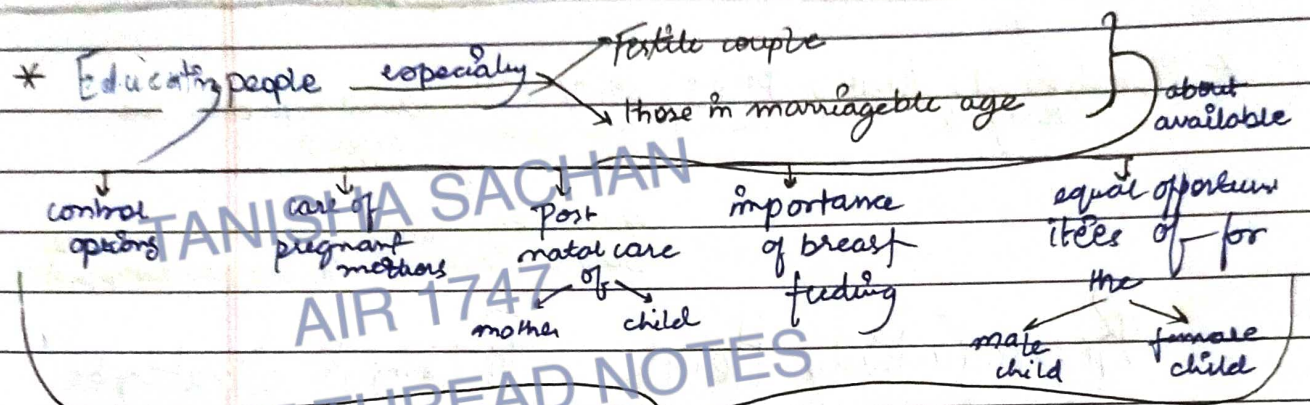 * Educating people especially Fertile couple
those in marriageble age
about available
control options
care of pregnant mothers
Post natal care of
mother child
importance of breast feeding
equal opportunities of for the
male child female child
TANISHA SACHAN
AIR 1747
THREAD NOTES